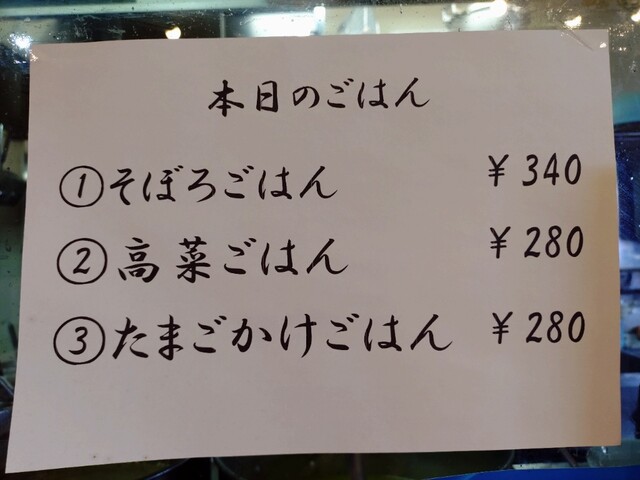 本日のごはん
①そぼろごはん ¥340
②高菜ごはん ¥280
③たまごかけごはん ¥280